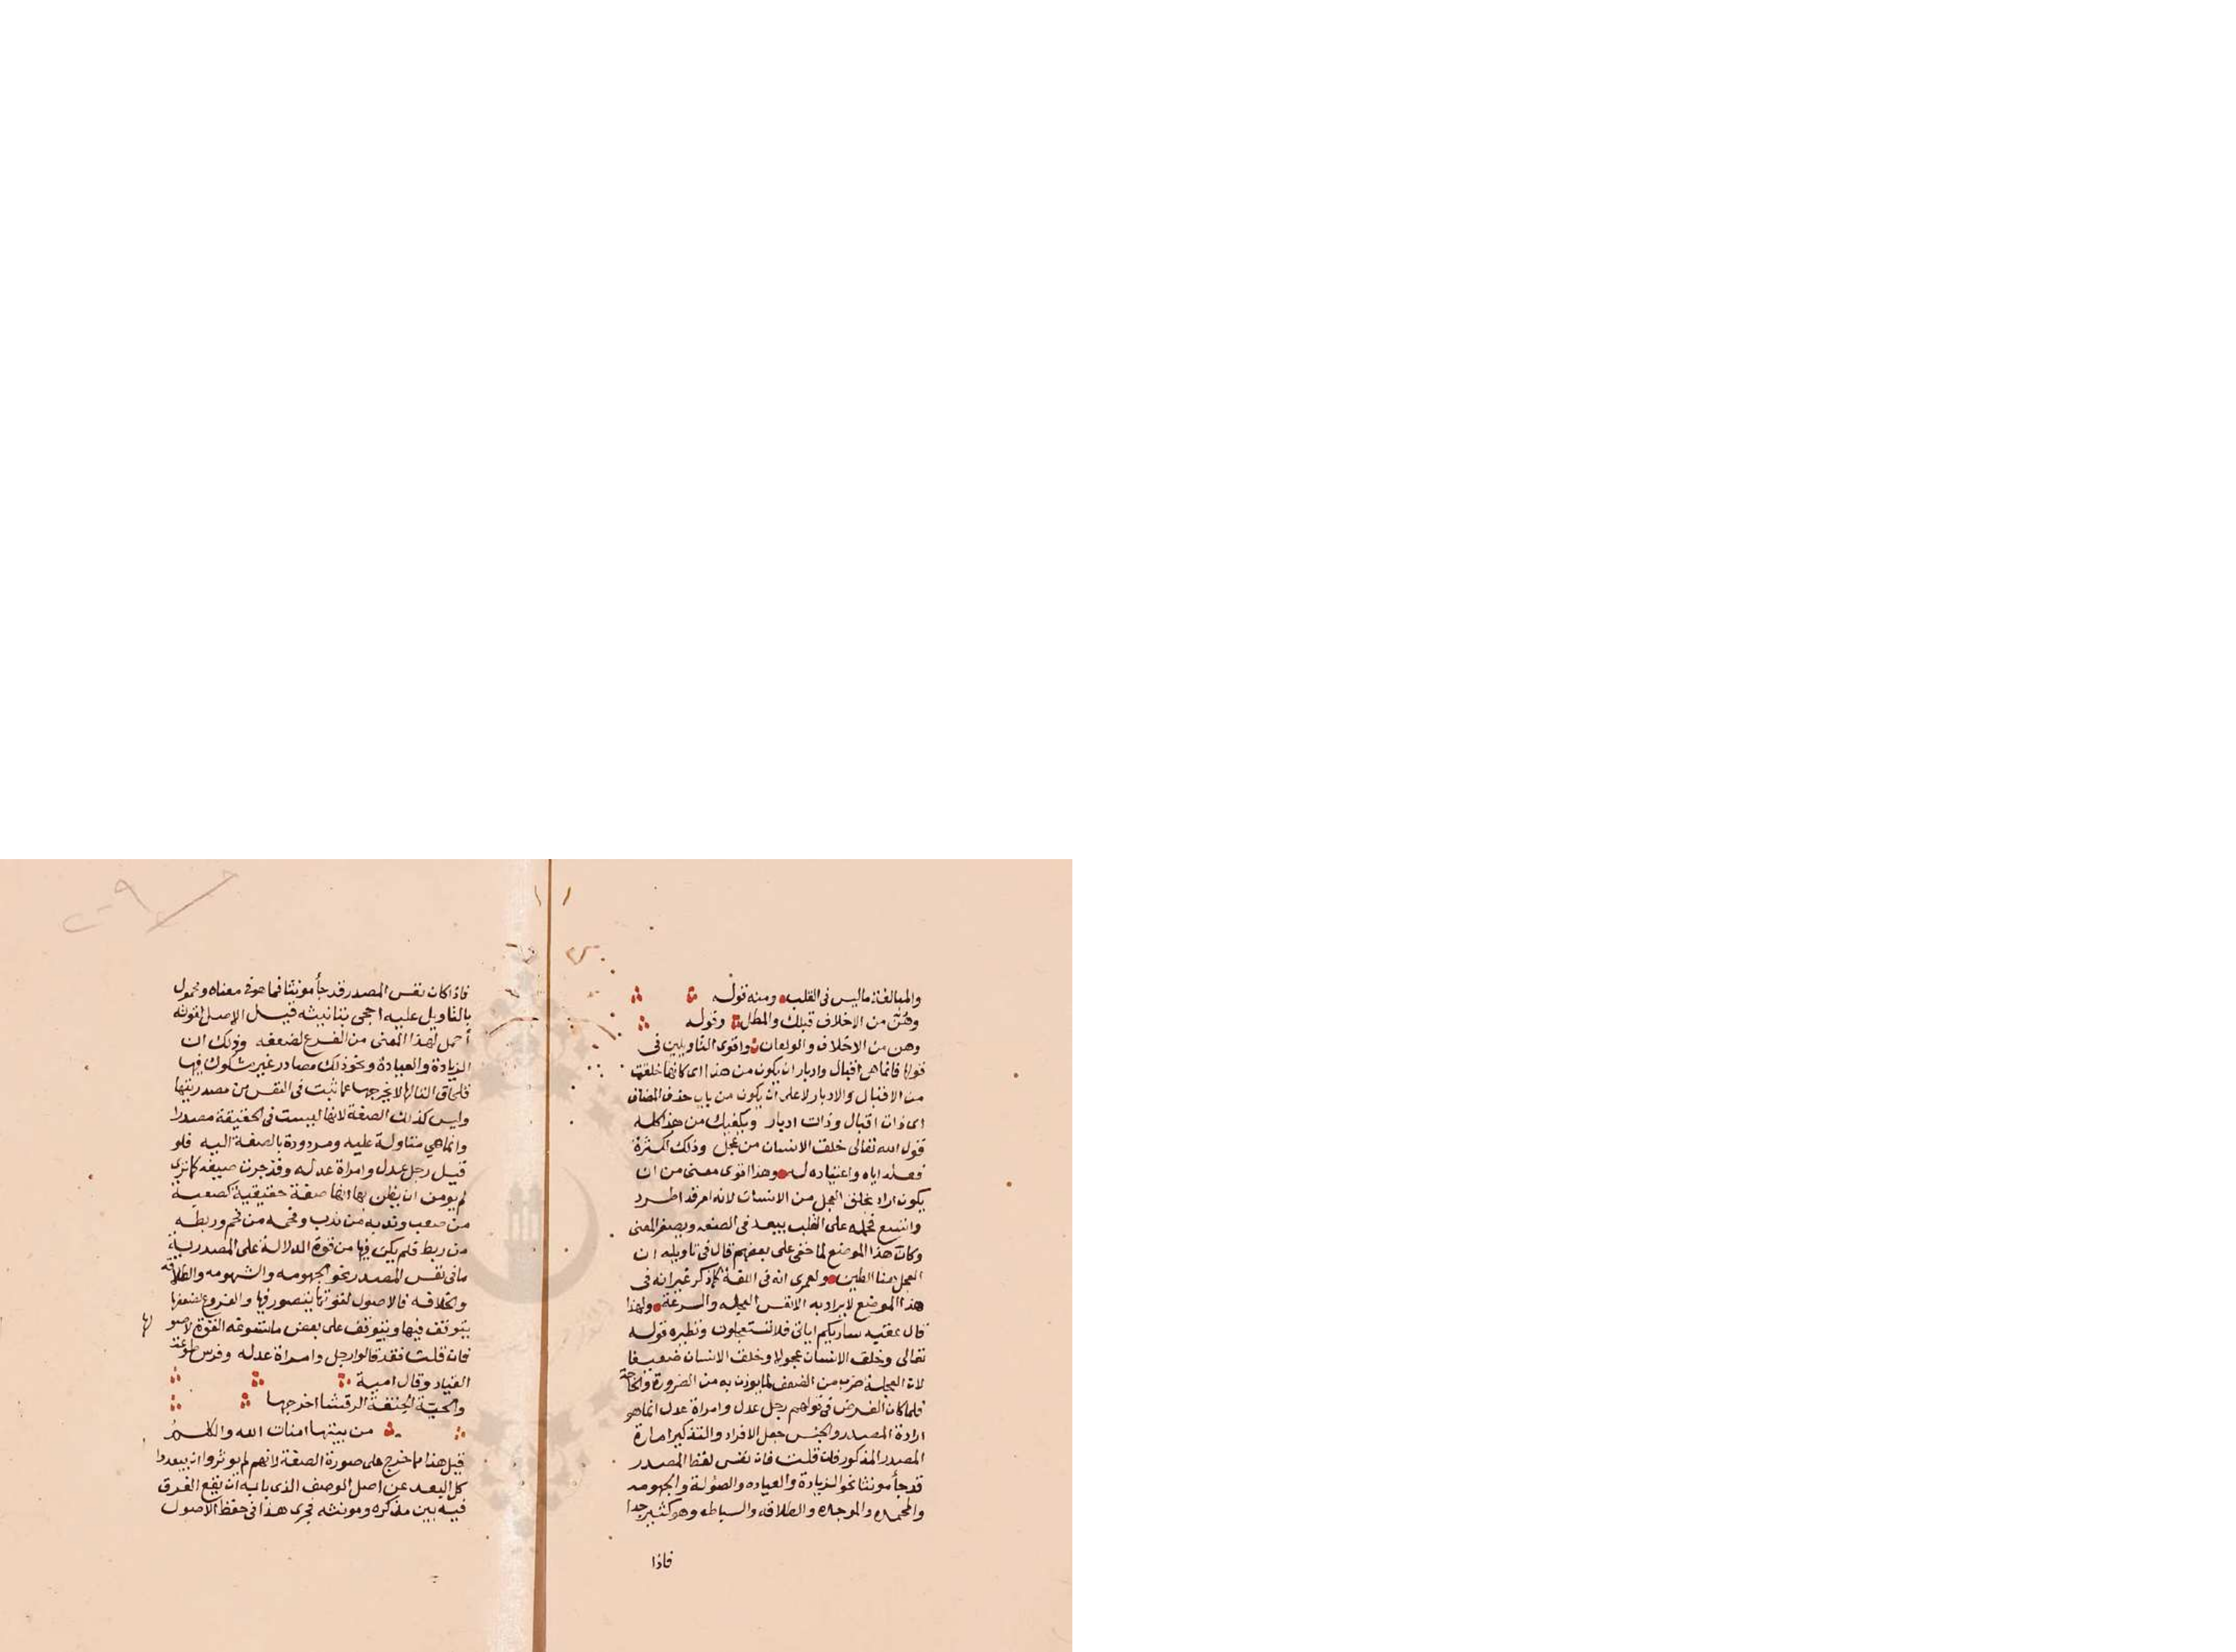 والمبالغة ما ليس في القلب ومنه قوله
وهن من الاخلاف قبلك والمطل وقوله
وهن من الاخلاف والولعان واقوى التاويلين في
قولها فانما هي اقبال وادبار ان يكون من هذا اى كانها خلقت
من الاقبال والادبار لا على ان يكون من باب حذف المضاف
اى ذات اقبال وذات ادبار ويكفيك من هذا كله
قول الله تعالى خلق الانسان من عجل وذلك لكثرة
فعله اياه واعتياده له وهذا اقوى معنى من ان
يكون اراد خلق العجل من الانسان لانه امر قد اطرد
واتسع فحمله على القلب يبعد في الصنعه ويصغر المعنى
وكان هذا الموضع لما خفى على بعضهم قال في تاويله ان
العجل هنا الطين ولعمرى انه في اللغة كما ذكر غير انه في
هذا الموضع لا يراد به الا نفس العجله والسرعة ولهذا
قال عقيبه ساريكم اياتى فلا تستعجلون ونظيره قوله
تعالى وخلق الانسان عجولا وخلق الانسان ضعيفا
لان العجلة ضرب من الضعف لما يوذن به من الضرورة والحاجة
فلما كان الغرض في قولهم رجل عدل وامراة عدل انما هو
ارادة المصدر والجنس جعل الافراد والتذكير امارة
المصدر المذكور فان قلت فان نفس لفظ المصدر
قد جأ مونثا نحو الزيادة والعياده والصولة والجهومه
والمحميه والموجده والطلاقه والسباطه وهو كثير جدا
فاذا
فاذا كان نفس المصدر قد جأ مونثا فما هو في معناه ومحمول
بالتاويل عليه احجى بتانيثه قيل الاصل لقوته
أحمل لهذا المعنى من الفرع لضعفه وذلك ان
الزيادة والعيادة ونحو ذلك مصادر غير مشكوك فيها
فلحاق التا لها لا يخرجها عما ثبت في النفس من مصدريتها
وليس كذلك الصفة لانها ليست في الحقيقة مصدرا
وانما هي متاولة عليه ومردودة بالصفة اليه فلو
قيل رجل عدل وامراة عدله وقد جرت صفة كما ترى
لم يومن ان يظن بها انها صفة حقيقية كصعبة
من صعب وندبه من ندب وفخمه من فخم وربطه
من ربط فلم يكن فيها من قوة الدلالة على المصدرية
ما في نفس المصدر نحو الجهومه والشهومه والطلاقه
والخلاقه فالاصول لقوتها يتصور فيها والفروع لضعفها
يتوقف فيها ويتوقف على بعض ما تسوغه القوة لاصولها
فان قلت فقد قالوا رجل وامراة عدله وفرس طوعة
القياد وقال امية
والحية الحتفة الرقشا اخرجها
من بيتها امنات الله والكلم
قيل هذا مما خرج على صورة الصفة لانهم لم يوثروا ان يبعدوا
كل البعد عن اصل الوصف الذى بابه ان يقع الفرق
فيه بين مذكره ومونثه فجرى هذا في حفظ الاصول